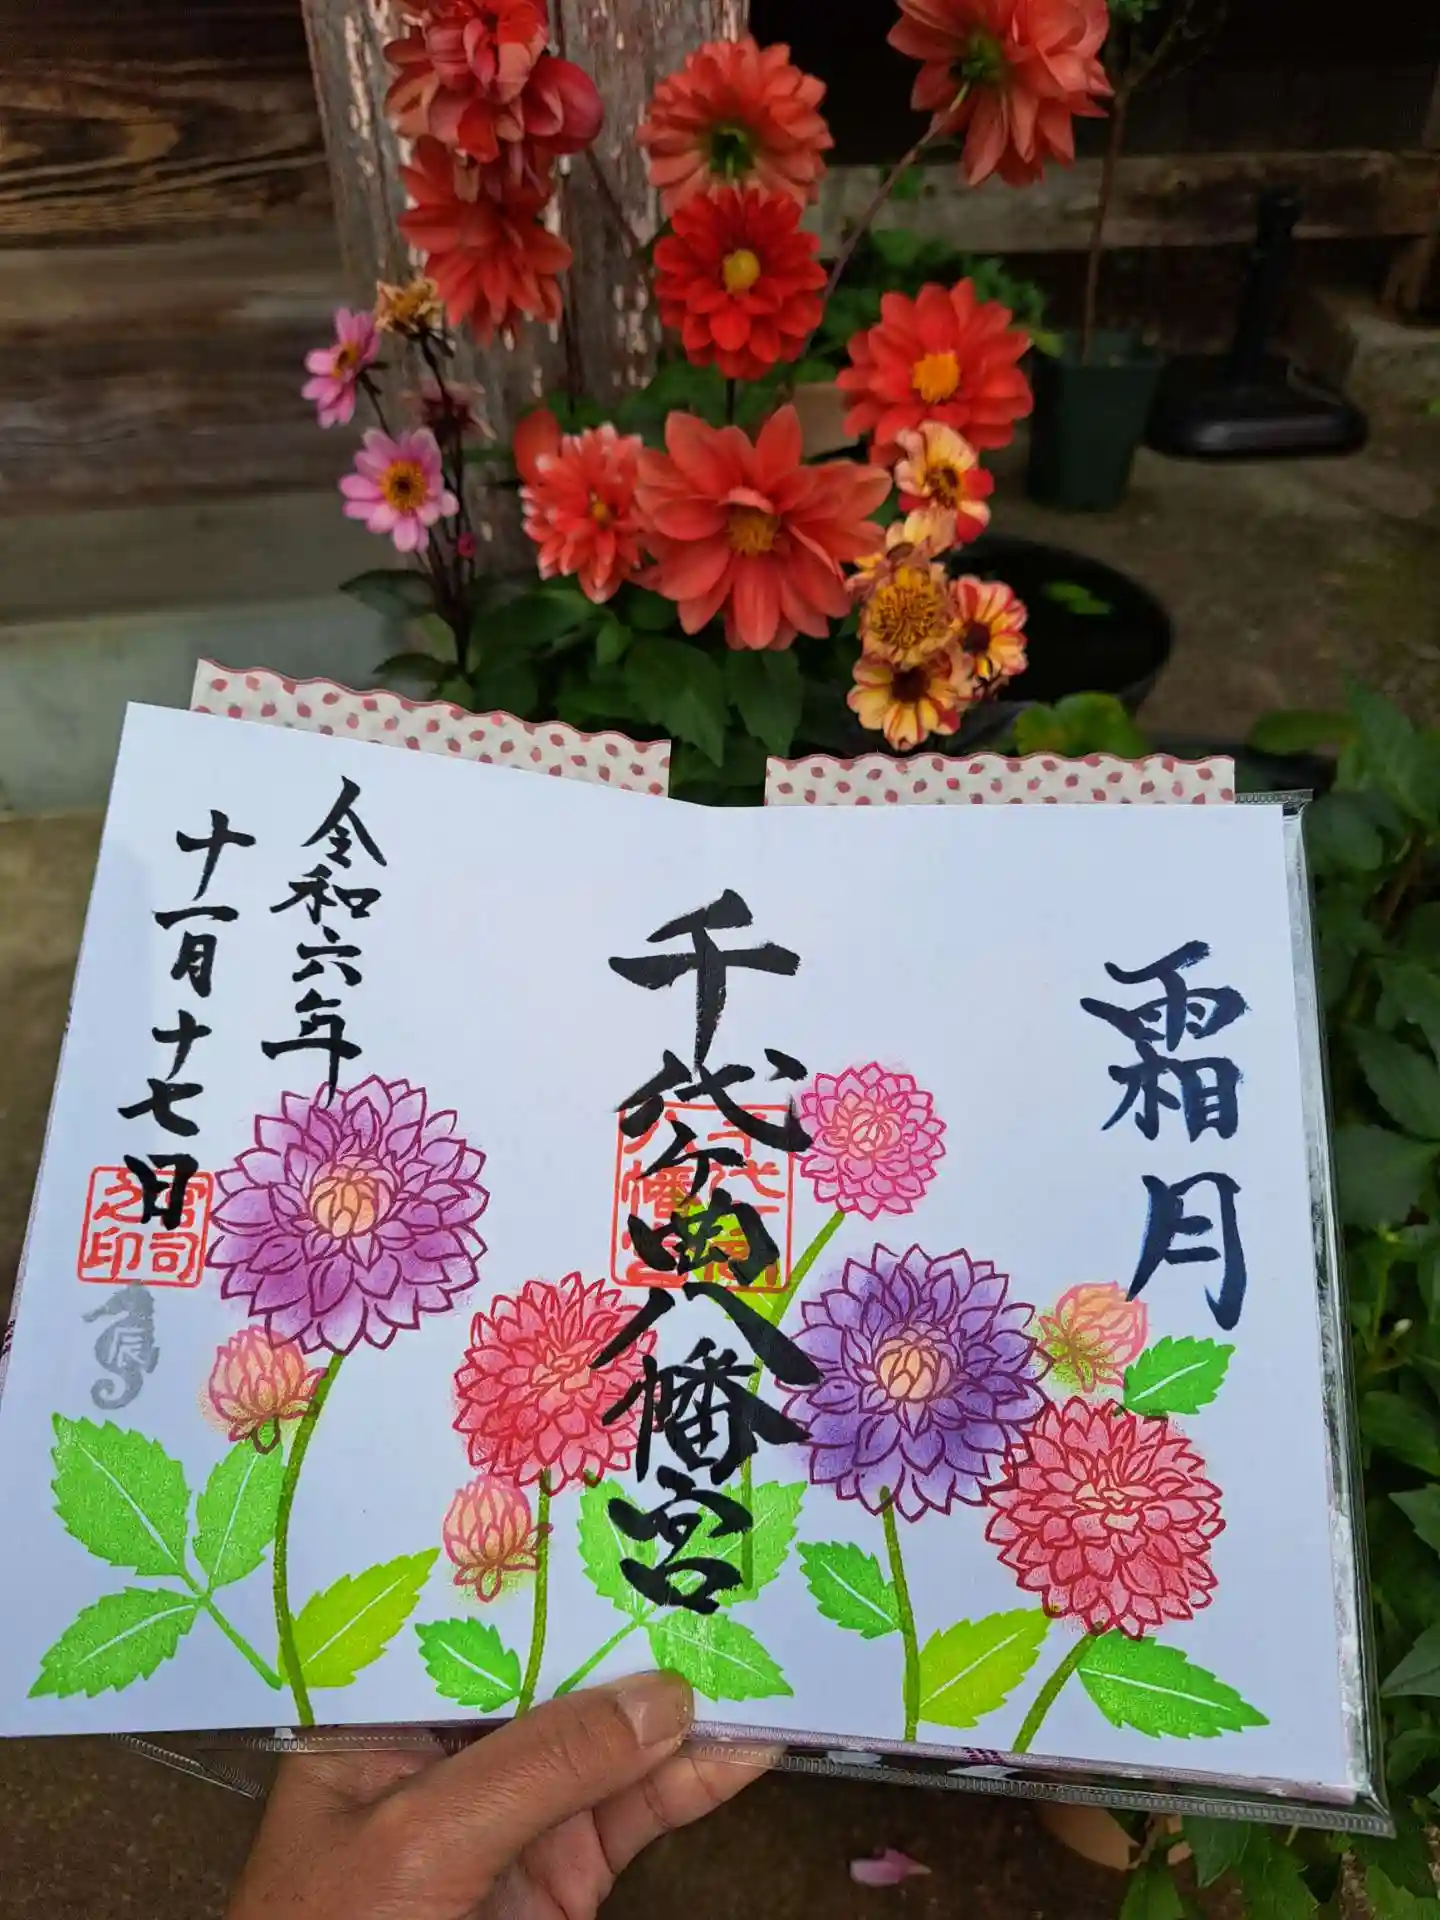 霜月
千代ケ岡八幡宮
令和六年
十一月十七日
宮司之印
辰